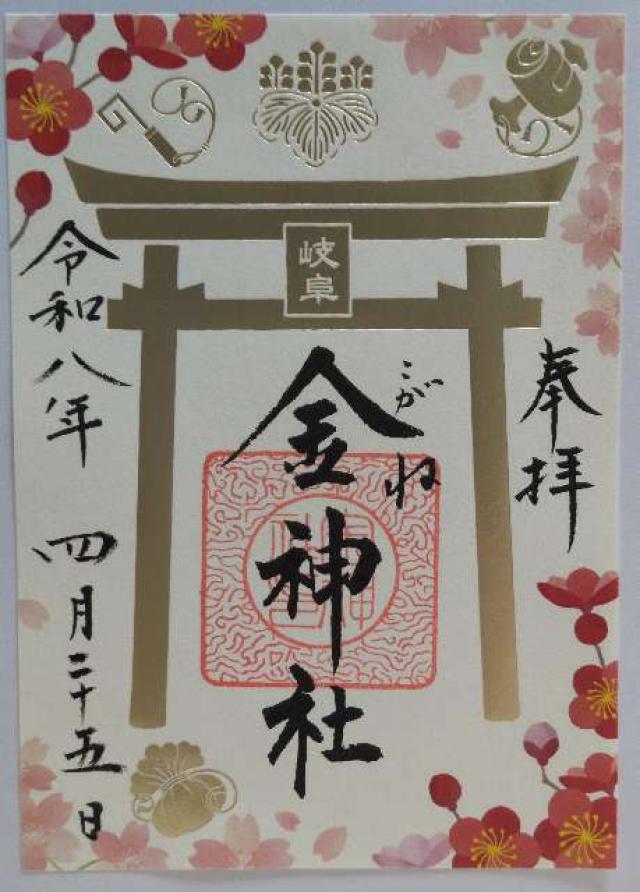 奉拝
岐阜
こがね
金神社
令和八年 四月二十五日